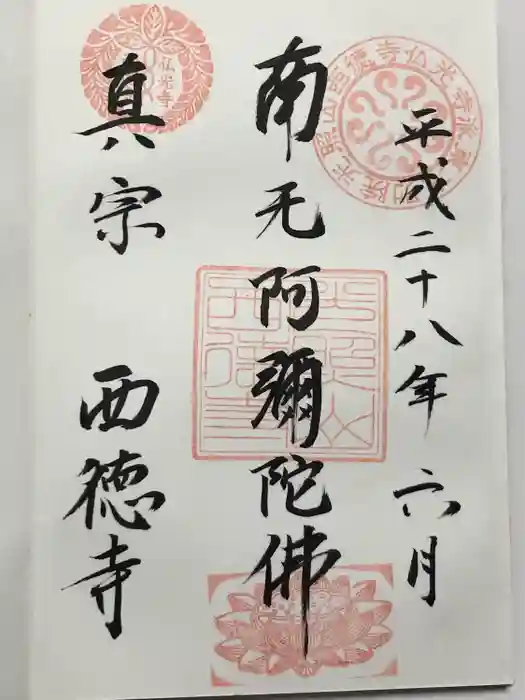 平成二十八年 六月
南无阿彌陀佛
真宗 西徳寺
仏光寺